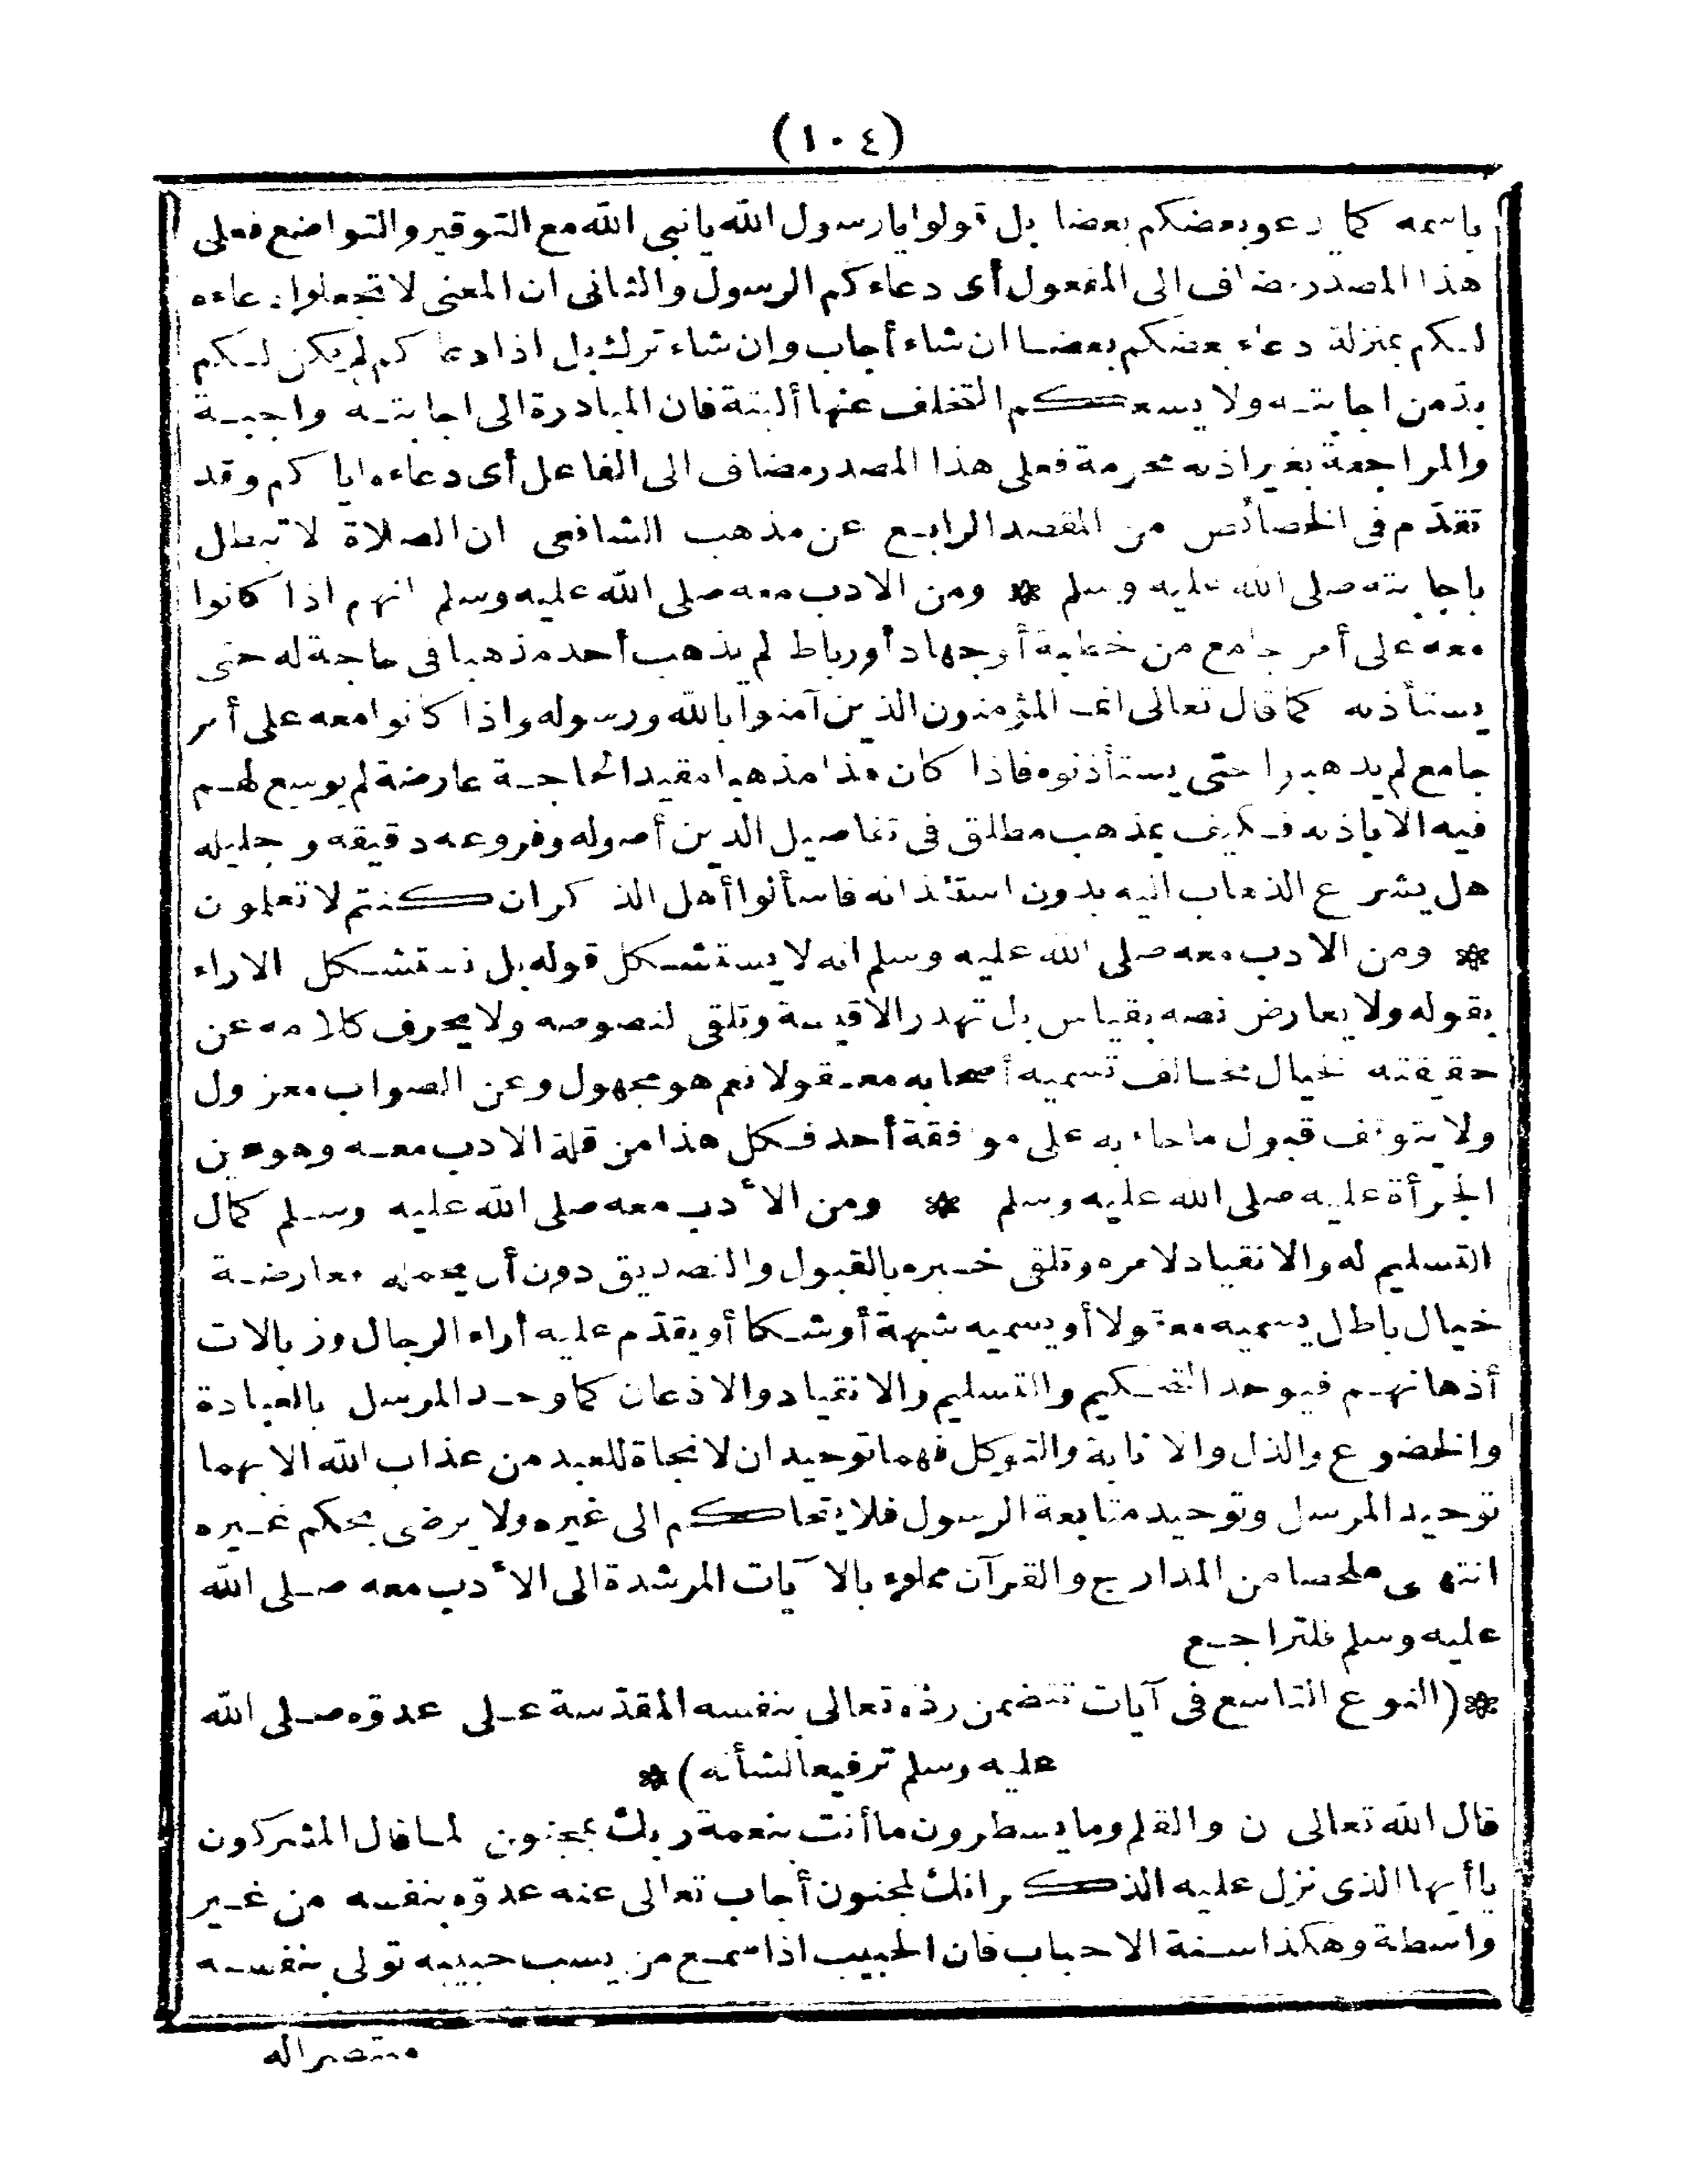 (١٠٤)
باسمه كما يدعو بعضكم بعضا بل قولوا يا رسول الله يا نبي الله مع التوقير والتواضع فعلى
هذا المصدر مضاف الى المفعول أى دعاءكم الرسول والثانى ان المعنى لا تجعلوا دعاءه
لكم بمنزلة دعاء بعضكم بعضا ان شاء أجاب وان شاء ترك بل اذا دعا كم لم يكن لكم
بدّ من اجابته ولا يسعكم التخلف عنها ألبتة فان المبادرة الى اجابته واجبة
والمراجعة بغير اذنه محرمة فعلى هذا المصدر مضاف الى الفاعل أى دعاءه ايا كم وقد
تقدّم فى الخصائص من المقصد الرابع عن مذهب الشافعى ان الصلاة لا تبطل
باجابته صلى الله عليه وسلم * ومن الادب معه صلى الله عليه وسلم انهم اذا كانوا
معه على أمر جامع من خطبة أو جهاد أو رباط لم يذهب أحد مذهبا فى حاجة له حتى
يستأذنه كما قال تعالى انما المؤمنون الذين آمنوا بالله ورسوله واذا كانوا معه على أمر
جامع لم يذهبوا حتى يستأذنوه فاذا كان هذا مذهبا مقيدا لحاجة عارضة لم يوسع لهم
فيه الا باذنه فكيف بمذهب مطلق فى تفاصيل الدين أصوله وفروعه دقيقه وجليله
هل يشرع الذهاب اليه بدون استئذانه فاسألوا أهل الذكر ان كنتم لا تعلمون
* ومن الادب معه صلى الله عليه وسلم انه لا يستشكل قوله بل تستشكل الاراء
بقوله ولا يعارض نصه بقياس بل تهدر الاقيسة وتلقى لنصوصه ولا يحرف كلامه عن
حقيقته لخيال مخالف تسميه أصحابه معقولا نعم هو مجهول وعن الصواب معزول
ولا يتوقف قبول ما جاء به على موافقة أحد فكل هذا من قلة الادب معه وهو عين
الجرأة عليه صلى الله عليه وسلم * ومن الأدب معه صلى الله عليه وسلم كمال
التسليم له والانقياد لامره وتلقى خبره بالقبول والتصديق دون أن يحمله معارضة
خيال باطل يسميه معقولا أو يسميه شبهة أو شكا أو يقدّم عليه أراء الرجال وزبالات
أذهانهم فيوحد التحكيم والتسليم والانقياد والاذعان كما وحد المرسل بالعبادة
والخضوع والذل والانابة والتوكل فهما توحيدان لا نجاة للعبد من عذاب الله الا بهما
توحيد المرسل وتوحيد متابعة الرسول فلا يتحاكم الى غيره ولا يرضى بحكم غيره
انتهى ملخصا من المدارج والقرآن مملوء بالآيات المرشدة الى الأدب معه صلى الله
عليه وسلم فلتراجع
*(النوع التاسع فى آيات تتضمن ردّه تعالى بنفسه المقدّسة على عدوّه صلى الله
عليه وسلم ترفيعا لشأنه)*
قال الله تعالى ن والقلم وما يسطرون ما أنت بنعمة ربك بمجنون لما قال المشركون
يا أيها الذى نزل عليه الذكر انك لمجنون أجاب تعالى عنه عدوّه بنفسه من غير
واسطة وهكذا سنة الاحباب فان الحبيب اذا سمع من يسب حبيبه تولى بنفسه
منتصرا له